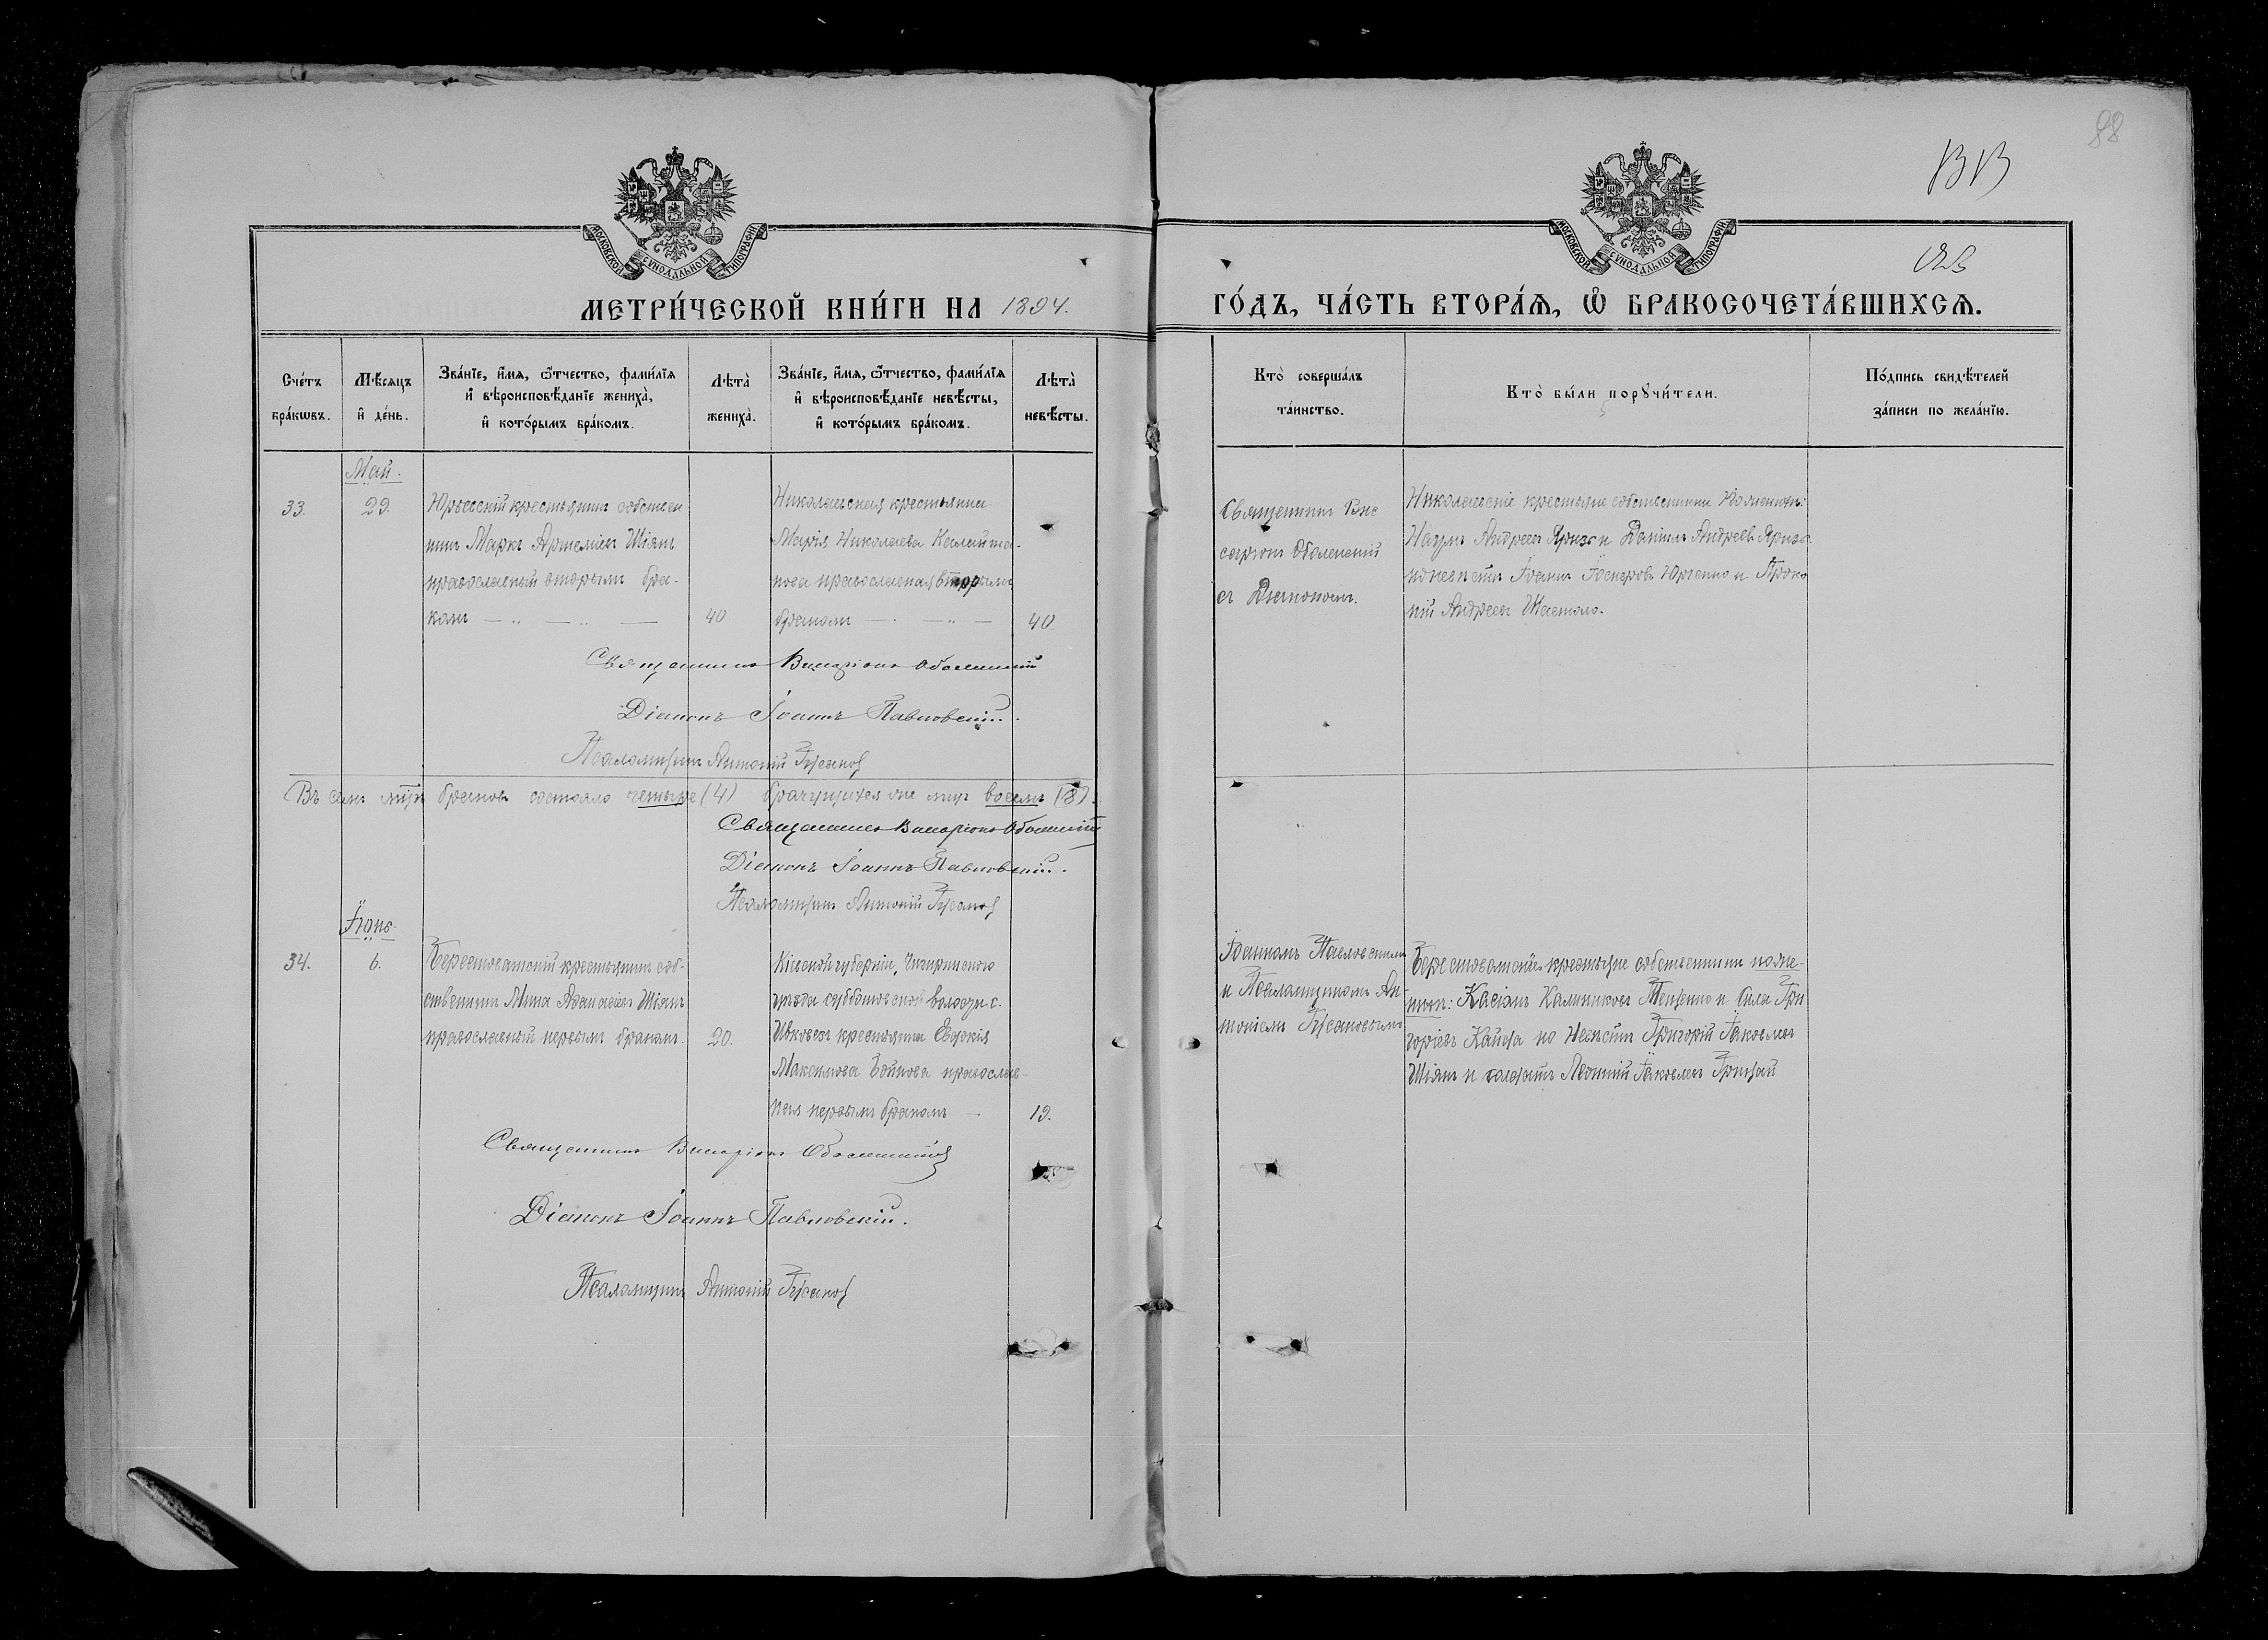 88
ВВ
МОСКОВСКОЙ СѴНОДАЛЬНОЙ ТИПОГРАФІИ
МОСКОВСКОЙ СѴНОДАЛЬНОЙ ТИПОГРАФІИ
МЕТРИ́ЧЕСКОЙ КНИ́ГИ НА 1894. ГО́ДЪ, ЧА́СТЬ ВТОРА́Я, Ѽ БРАКОСОЧЕТА́ВШИХСЯ.
Сче́тъ
бра́кѡвъ.
Мѣ́сяцъ
и҆ де́нь.
Зва́нїе, и҆́мя, ѻ҆́тчество, фами́лїя
и҆ вѣроисповѣ́данїе жениха̀,
и҆ кото́рымъ бра́комъ.
Лѣта̀
жениха̀.
Зва́нїе, и҆́мя, ѻ҆́тчество, фами́лїя
и҆ вѣроисповѣ́данїе невѣ́сты,
и҆ кото́рымъ бра́комъ.
Лѣта̀
невѣ́сты.
Кто̀ соверша́лъ
та́инство.
Кто̀ бы́ли порꙋчи́тели.
По́дпись свидѣ́телей
за́писи по жела́нїю.
Май.
33.
29.
Юрьевскій крестьянинъ собствен
никъ Маркъ Артеміевъ Шіянъ
православный вторымъ бра-
комъ
40
Николаевская крестьянка
Марія Николаева
нова православная, вторымъ
бракомъ
40.
Священникъ Вис
саріонъ Оболенскій
съ Діакономъ.
Николаевскіе крестьяне собственники По женихѣ:
Наумъ Андреевъ и Даніилъ Андреевъ
по невѣстѣ Іоаннъ Юрченко и Проко
пій Андреевъ
Священникъ Виссаріонъ Оболенскій
Діаконъ Іоаннъ Павловскій.
Псаломщикъ Антоній
Въ семъ м̃цѣ браковъ состояло четыре (4) брачущихся же лицъ восемь (8).
Священникъ Виссаріонъ Оболенскій
Діаконъ Іоаннъ Павловскій.
Псаломщикъ Антоній
Іюнь.
34.
6.
Берестоватскій крестьянинъ соб-
ственникъ Мина Аѳанасіевъ Шіянъ
православный первымъ бракомъ.
20.
Кіевской губерніи, Чигиринскаго
уѣзда субботовской волости с.
Ивковецъ крестьянка Евдокія
Максимова православ-
ная первымъ бракомъ
19.
Іоанномъ Павловскимъ
и Псаломщикомъ Ан-
тоніемъ
Берестоватскіе крестьяне собственники по же-
нихѣ: Касіанъ Калиниковъ и Сила Гри
горіевъ по Невѣстѣ Григорій Іаковлевъ
Шіянъ и солдатъ Леонтій Іаковлевъ Грицай
Священникъ Виссаріонъ Оболенскій
Діаконъ Іоаннъ Павловскій.
Псаломщикъ Антоній